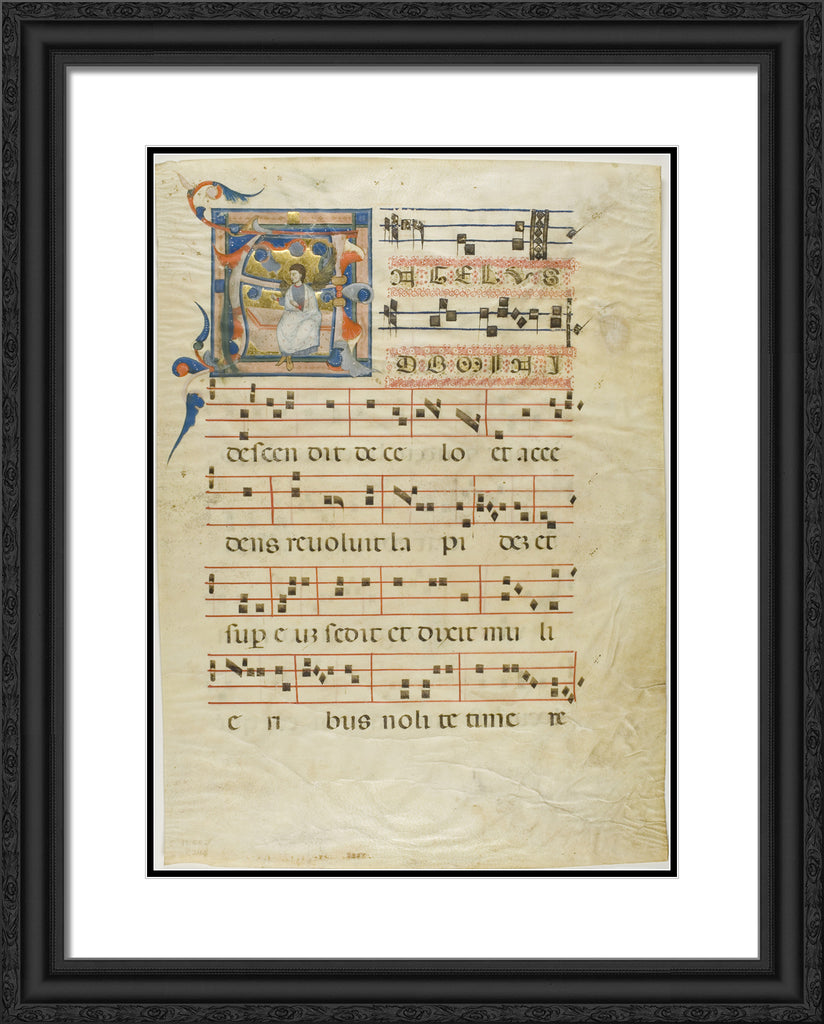 ANGELVS
DOMINI
descen dit de ce lo et acce
dens reuoluit la pi dez et
suꝑ e uz sedit et dixit mu li
e ri bus noli te time re